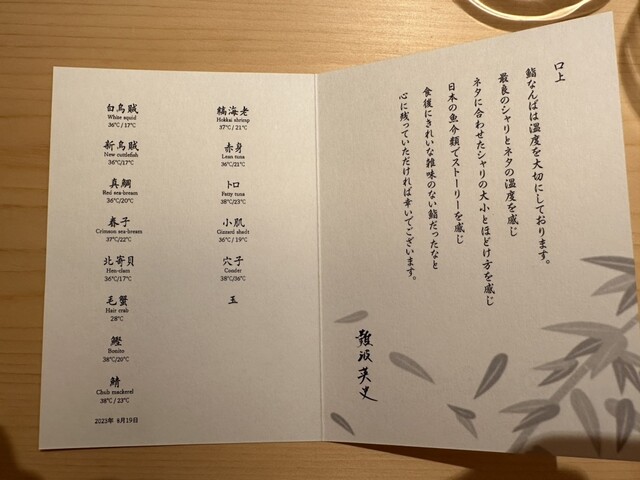 白烏賊
White squid
36℃/17℃
新烏賊
New cuttlefish
36℃/17℃
真鯛
Red sea-bream
36℃/20℃
春子
Crimson sea-bream
37℃/22℃
北寄貝
Hen-clam
36℃/17℃
毛蟹
Hair crab
28℃
鰹
Bonito
38℃/20℃
鯖
Chub mackerel
38℃/23℃
2023年 8月19日
縞海老
Hokkai shrimp
37℃/21℃
赤身
Lean tuna
36℃/21℃
トロ
Fatty tuna
38℃/23℃
小肌
Gizzard shadt
36℃/19℃
穴子
Conder
38℃/36℃
玉
口上
鮨なんばは温度を大切にしております。
最良のシャリとネタの温度を感じ
ネタに合わせたシャリの大小とほどけ方を感じ
日本の魚介類でストーリーを感じ
食後にきれいな雑味のない鮨だったなと
心に残っていただければ幸いでございます。
難波英史